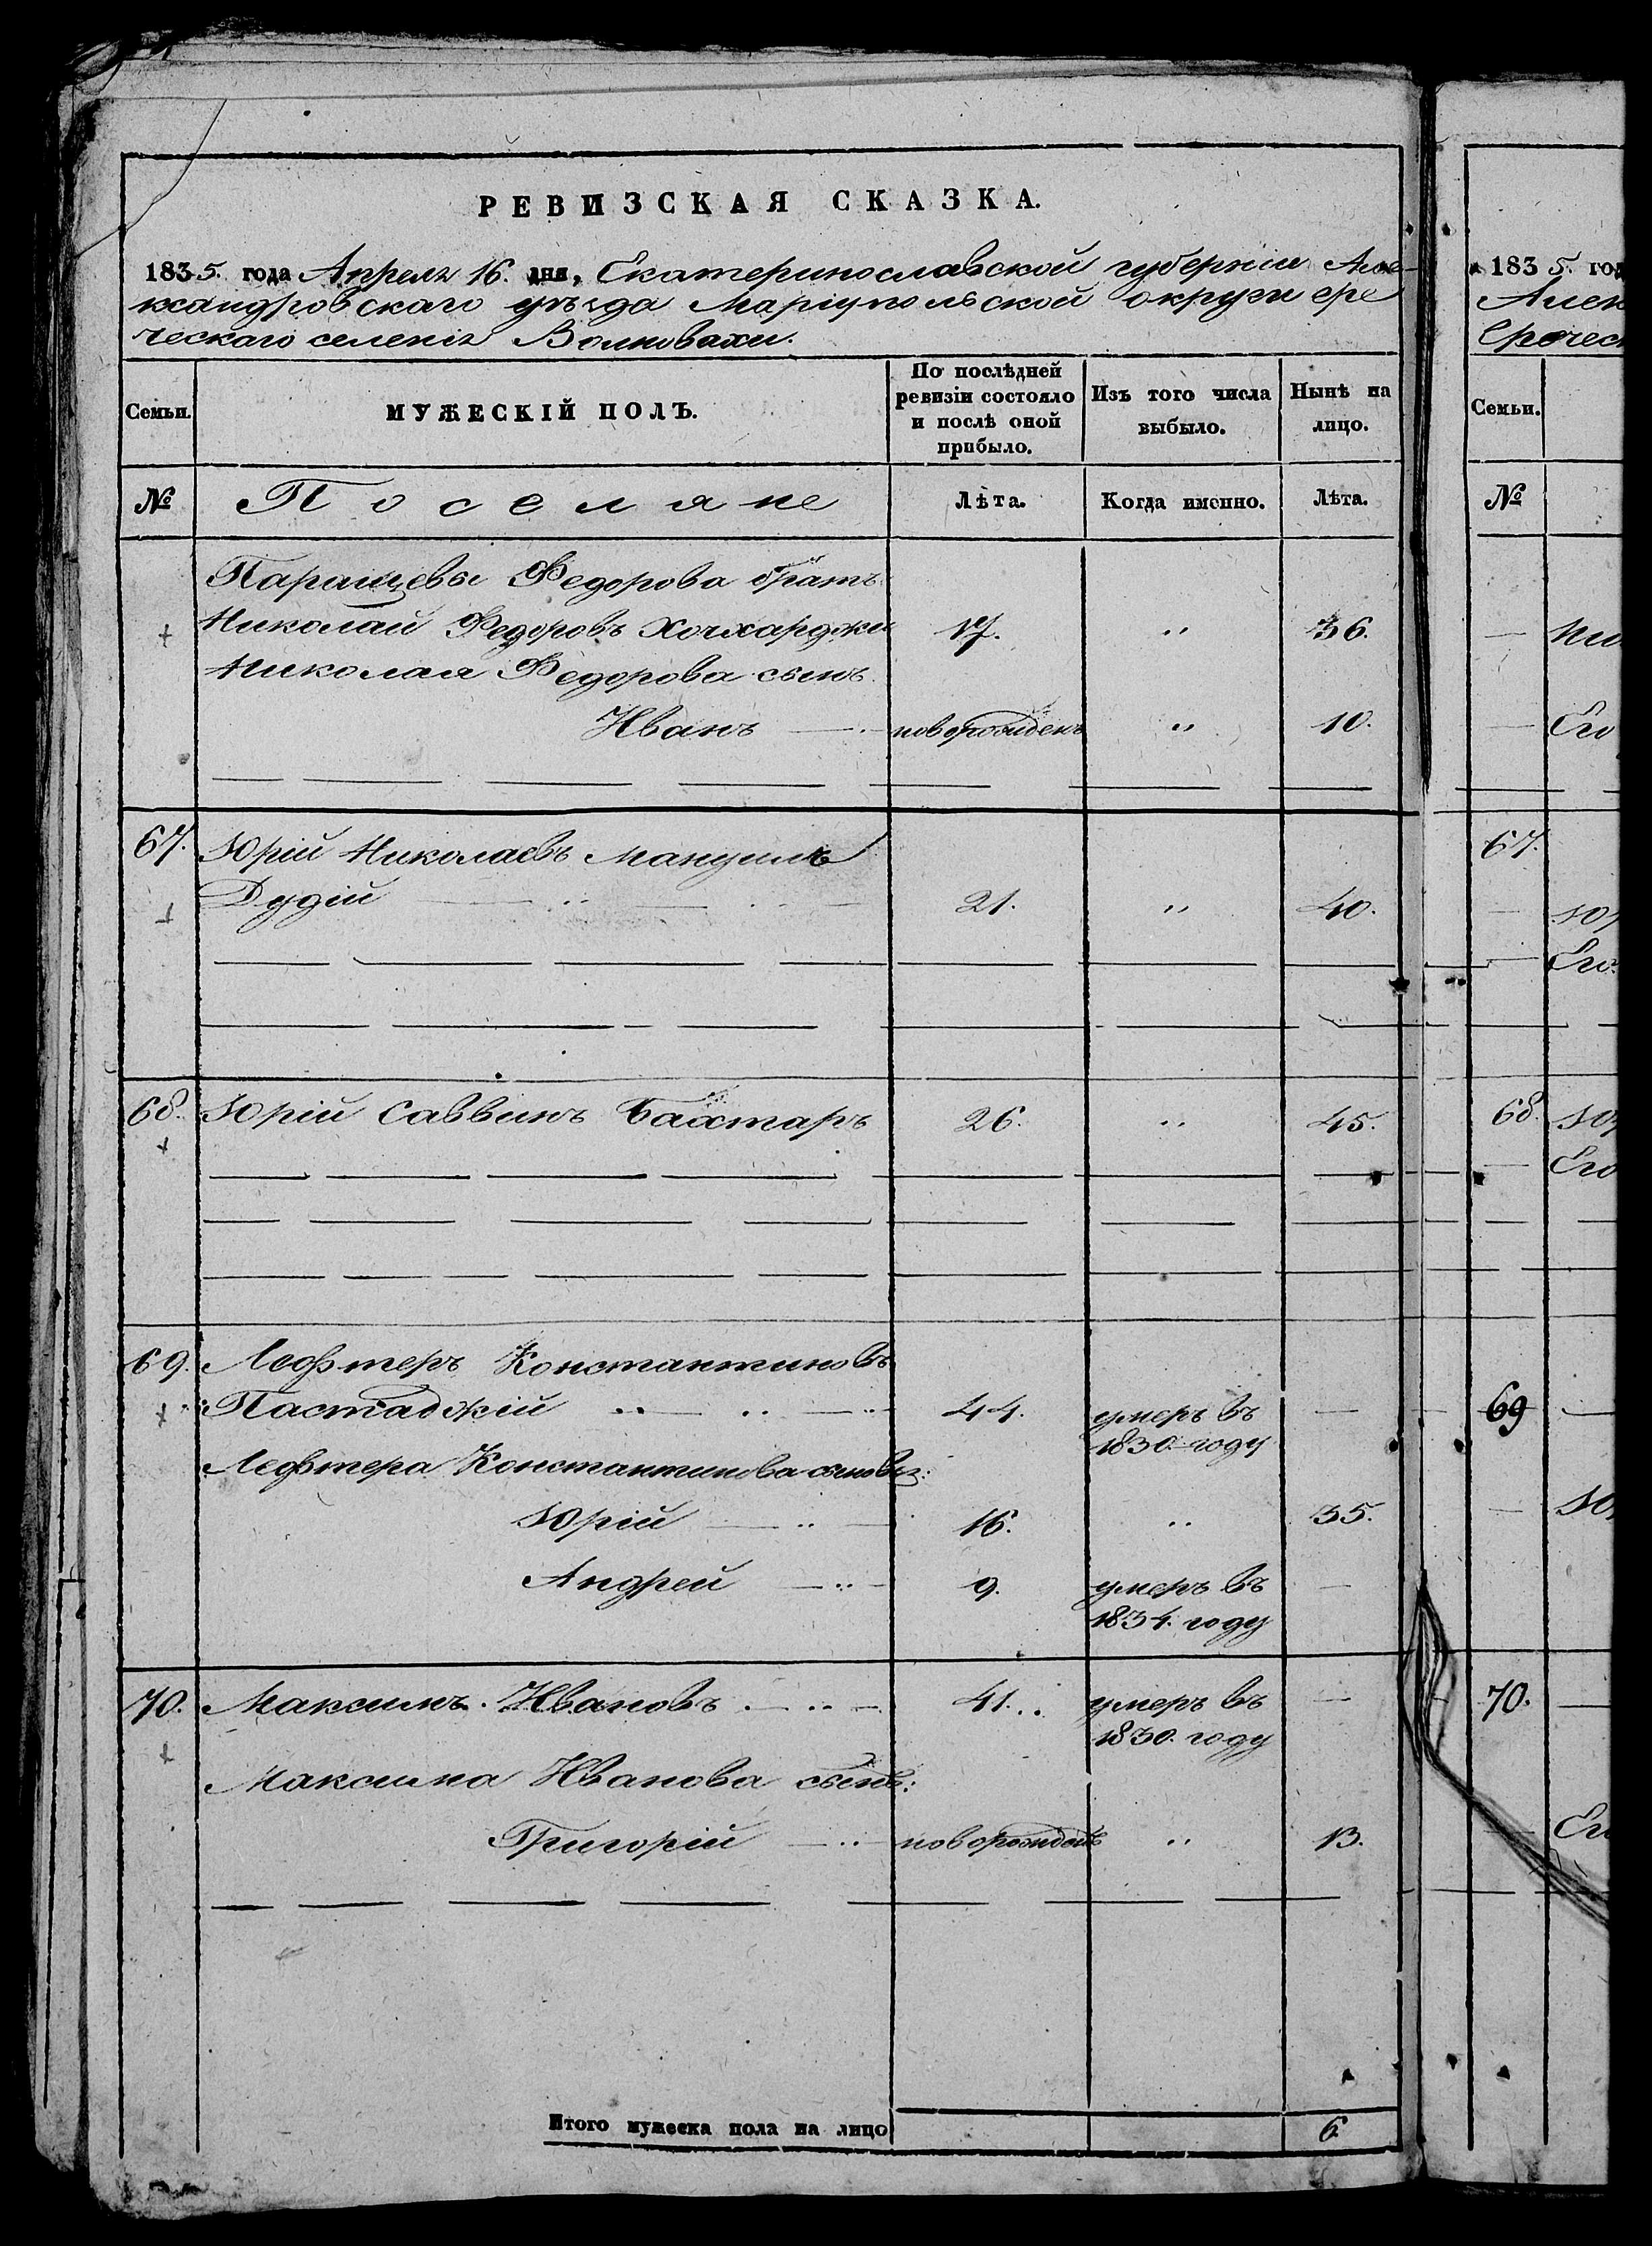 РЕВИЗСКАЯ СКАЗКА.
1835. года Апреля 16. дня, Екатеринославской губерніи Але-
ксандровскаго уѣзда Маріупольской округи гре
ческаго селенія Волновахи.
Семьи.
МУЖЕСКІЙ ПОЛЪ.
По послѣдней ревизіи состояло и послѣ оной прибыло.
Изъ того числа выбыло.
Нынѣ на лицо.
№ Поселяне Лѣта. Когда именно. Лѣта.
Паращевы Федорова братъ
Николай Федоровъ Хочхарджи 17. " 36.
Николая Федорова сынъ
Иванъ новорожденъ " 10.
67. Юрій Николаевъ Мануилъ
Дудій 21. " 40.
68. Юрій Саввинъ Бахтаръ 26. " 45.
69. Лефтеръ Константиновъ
Пастаджій 44. умеръ въ —
1830. году
Лефтера Константинова сыновья:
Юрій 16. " 35.
Андрей 9. умеръ въ —
1834. году
70. Максимъ Ивановъ 41. умеръ въ —
1830. году
Максима Иванова сынъ:
Григорій новорожденъ " 13.
Итого мужеска пола на лицо 6
1835. год
Алек
Гречес
Семьи.
№
Ни
Его
67.
Юр
Его
68. Юр
Его
69
Юр
70.
Ег